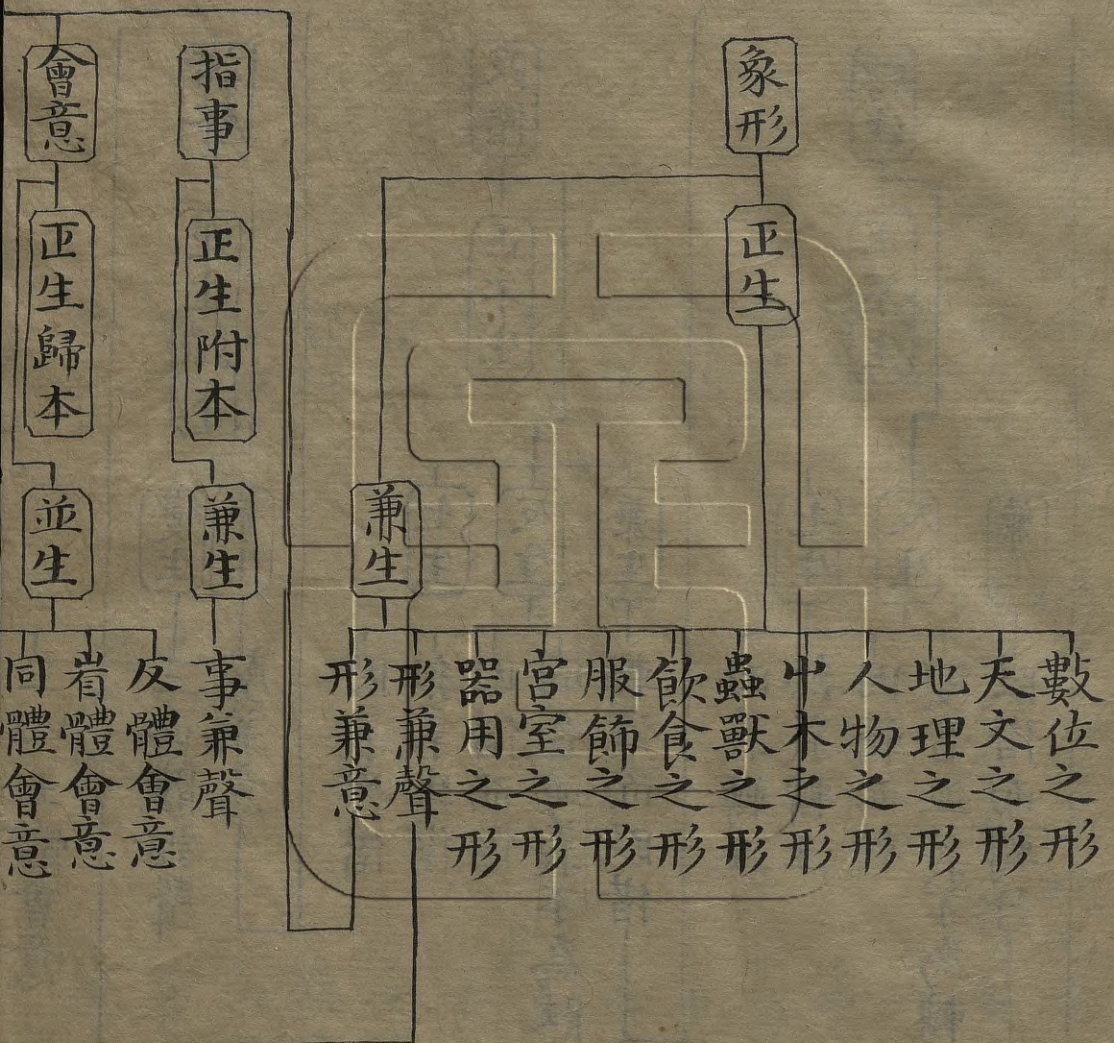 象形
正生
數位之形
天文之形
地理之形
人物之形
屮木之形
蟲獸之形
飲食之形
服飾之形
宮室之形
器用之形
兼生
形兼聲
形兼意
指事
正生附本
兼生
事兼聲
會意
正生歸本
並生
反體會意
省體會意
同體會意